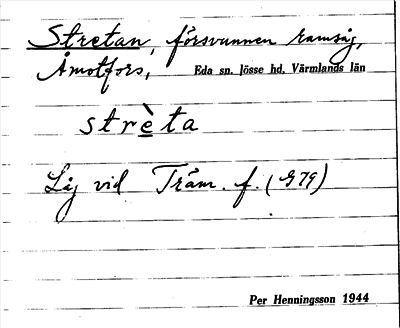 Stretan, försvunnen ramsåg,
Åmotfors, Eda sn. Jösse hd. Värmlands län
strè̱ta
Låg vid Träm. f. (G79)
Per Henningsson 1944